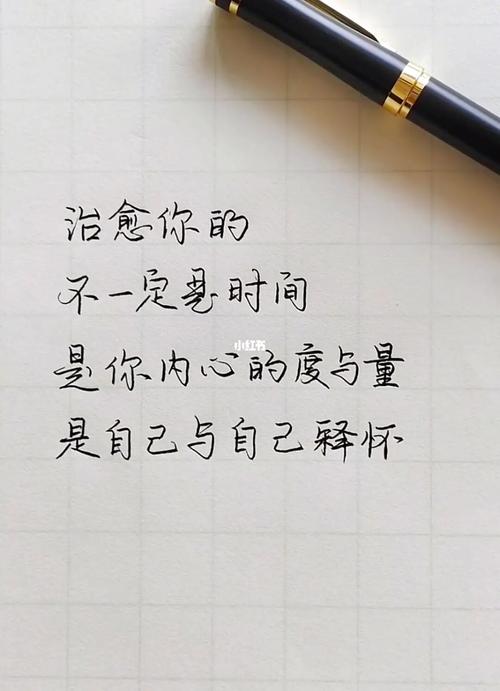 治愈你的
不一定是时间
小红书
是你内心的度与量
是自己与自己释怀